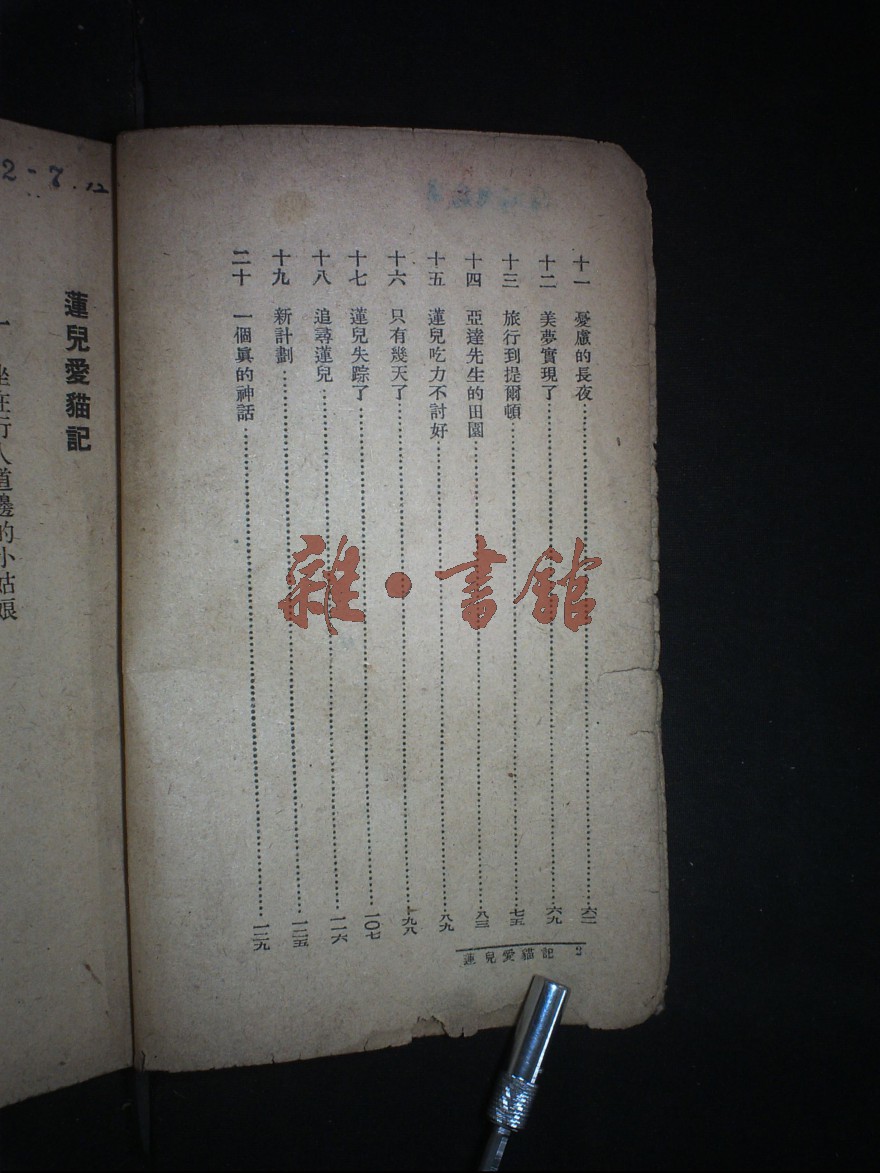 十一 憂慮的長夜……六二
十二 美夢實現了……六九
十三 旅行到提爾頓……七五
十四 亞達先生的田園……八三
十五 蓮兒吃力不討好……八九
十六 只有幾天了……九八
十七 蓮兒失踪了……一〇七
十八 追尋蓮兒……一一六
十九 新計劃……一二五
二十 一個眞的神話……一二九
蓮兒愛貓記 2
雜·書館
2-7.12
蓮兒愛貓記
一 坐在行人道邊的小姑娘